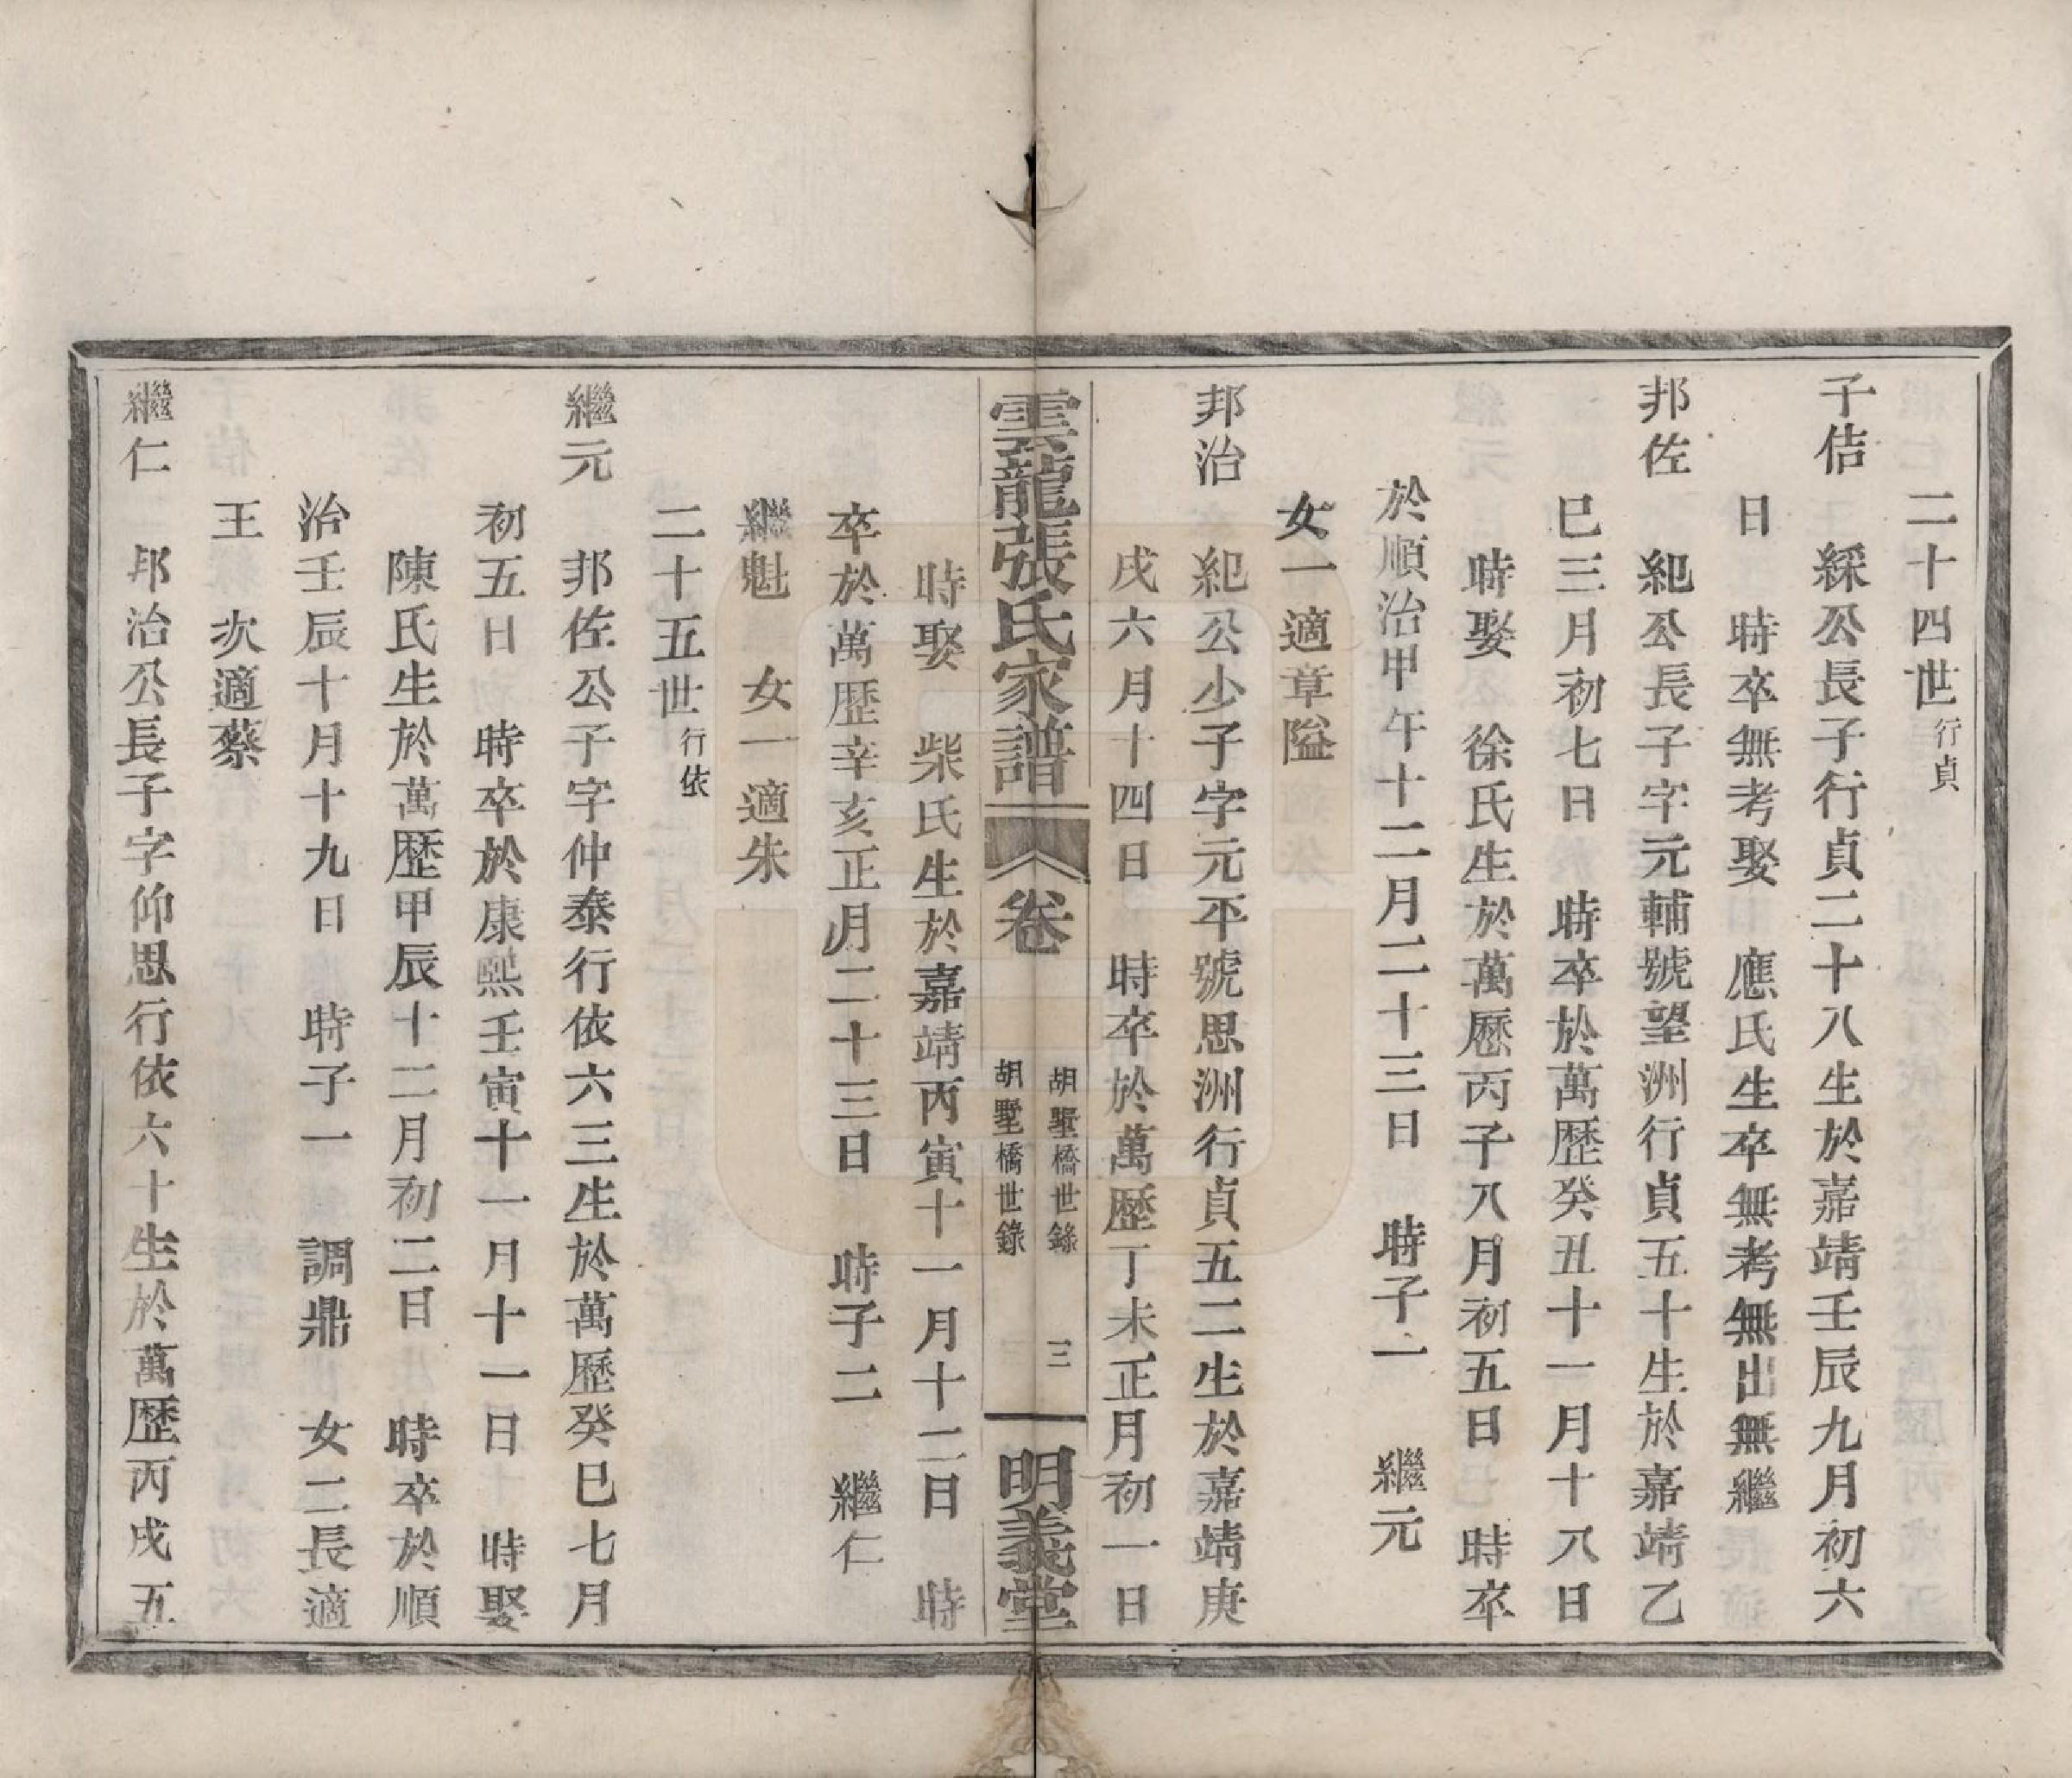 二十四世行貞
子佶 綵公長子行貞二十八生於嘉靖壬辰九月初六
日 時卒無考娶 應氏生卒無考無出無繼
邦佐 紀公長子字元輔號望洲行貞五十生於嘉靖乙
巳三月初七日 時卒於萬歷癸丑十一月十八日
時娶 徐氏生於萬歷丙子八月初五日 時卒
於順治甲午十二月二十三日 時子一 繼元
女一適章隘
邦治 紀公少子字元平號思洲行貞五二生於嘉靖庚
戌六月十四日 時卒於萬歷丁未正月初一日
雲龍張氏家譜 卷 胡墅橋世錄 胡墅橋世錄 三 明義堂
時娶 柴氏生於嘉靖丙寅十一月十二日 時
卒於萬歷辛亥正月二十三日 時子二 繼仁
繼魁 女一適朱
二十五世行依
繼元 邦佐公子字仲泰行依六三生於萬歷癸巳七月
初五日 時卒於康熙壬寅十一月十一日 時娶
陳氏生於萬歷甲辰十二月初二日 時卒於順
治壬辰十月十九日 時子一 調鼎 女二長適
王 次適蔡
繼仁 邦治公長子字仰思行依六十生於萬歷丙戌五